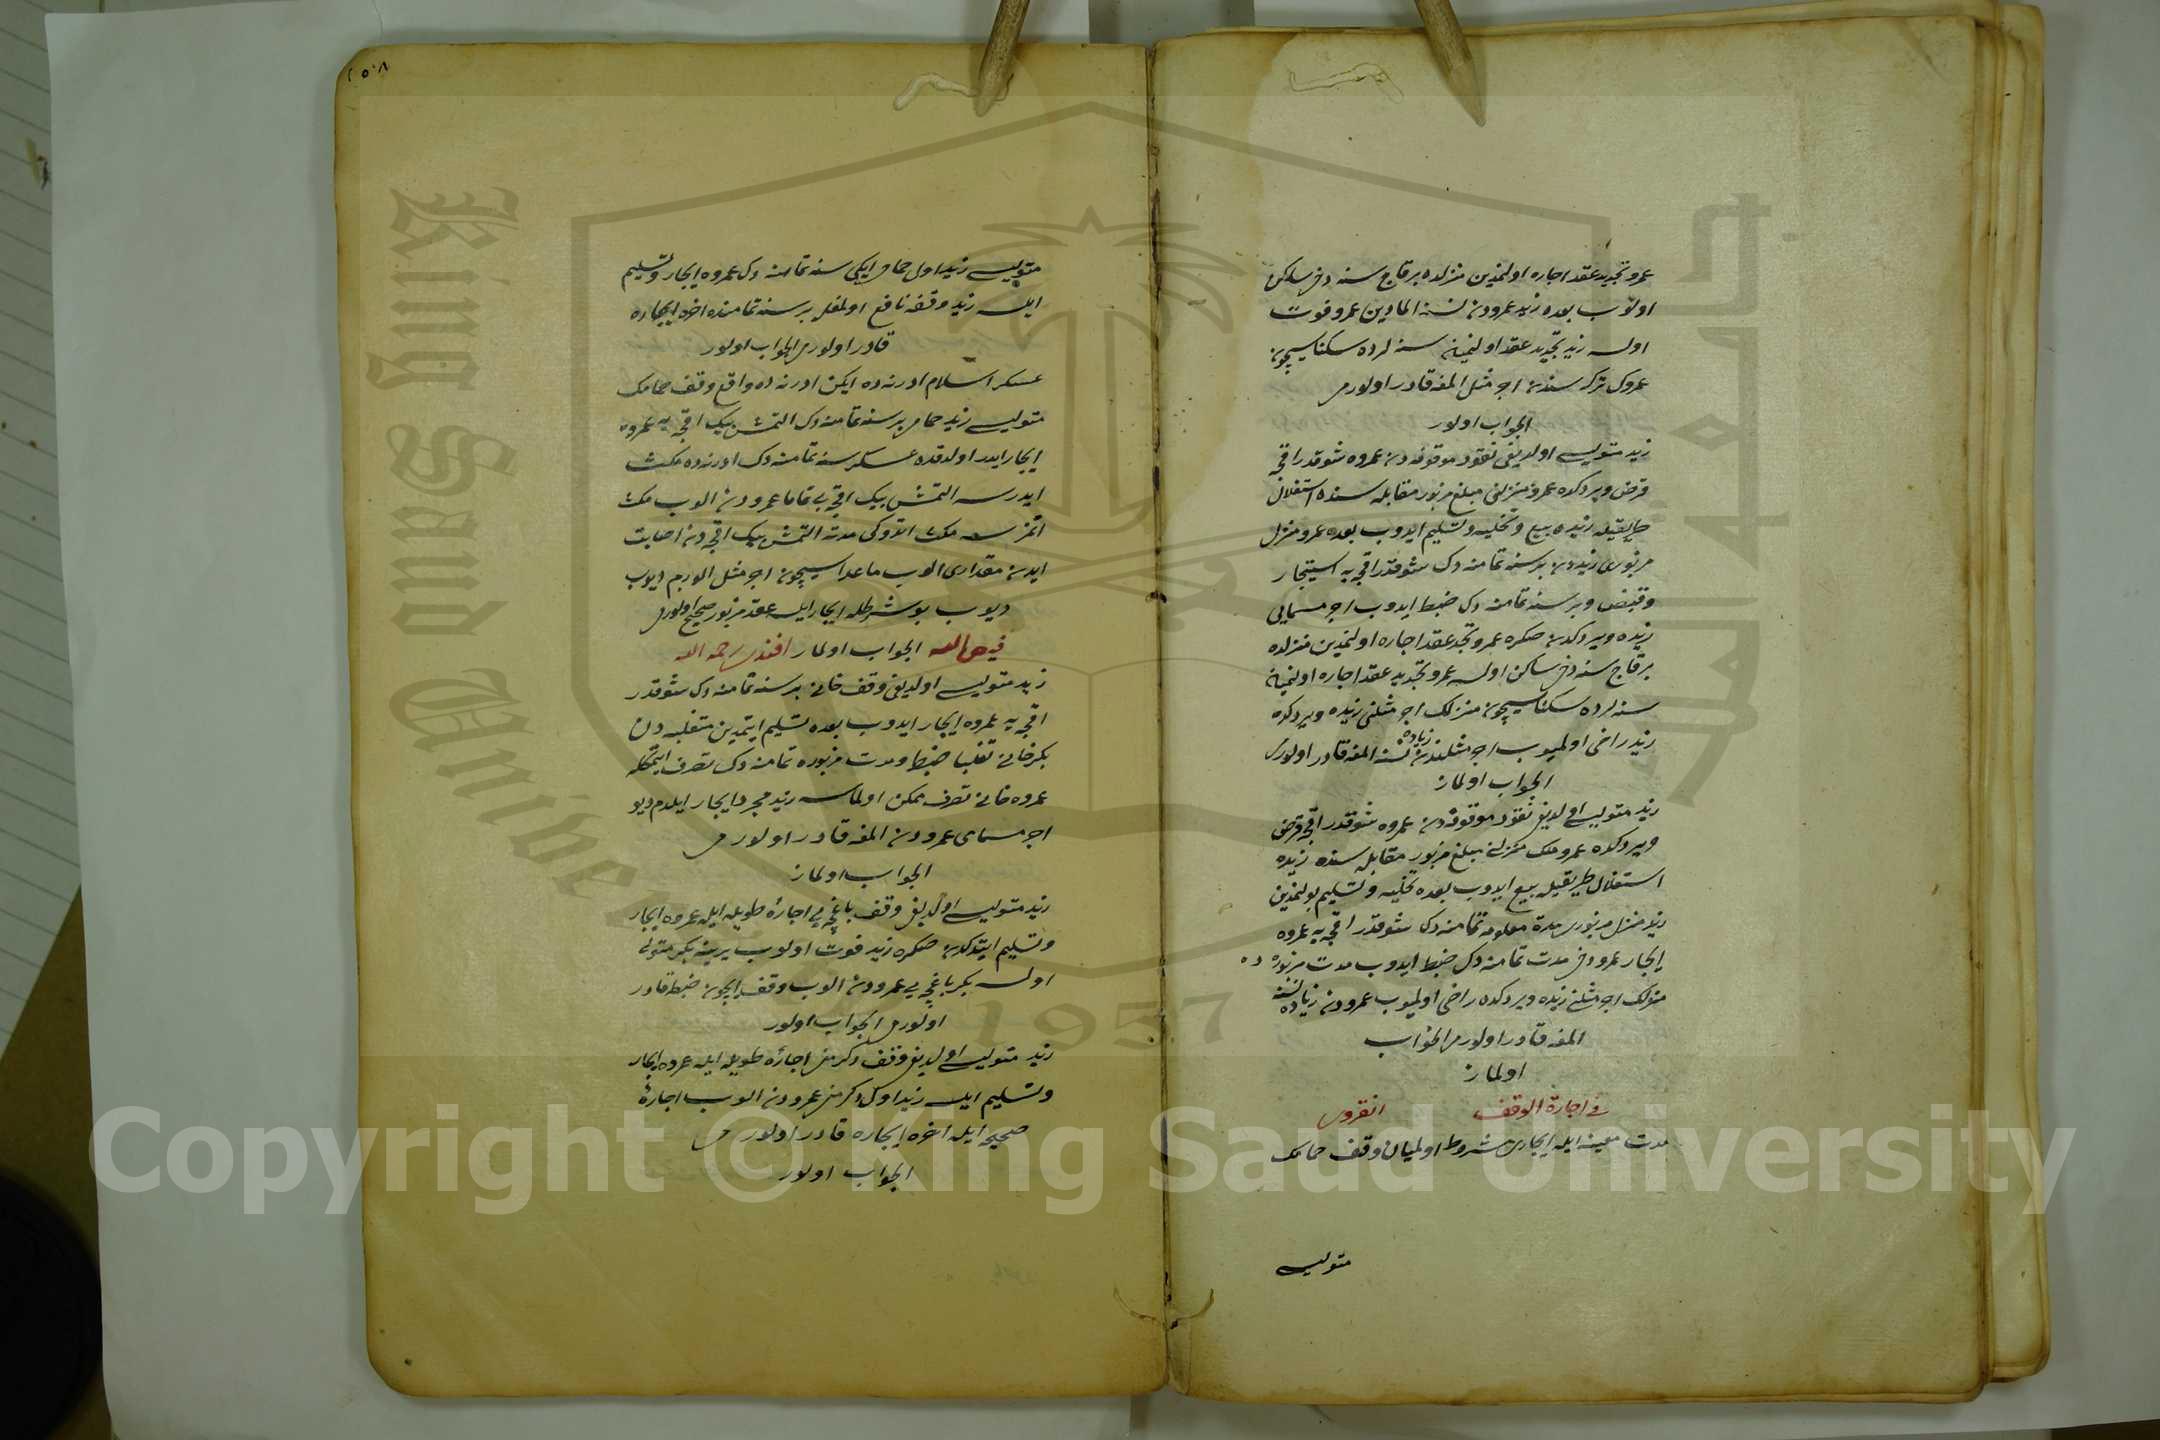 عمرو تجديد عقد اجاره اولنمدين منزلده بر قاج سنه دخى ساكن
اولوب بعده زيد عمرودن نسنه المادين عمرو فوت
اولسه زيد تجديد عقد اولنميان سنه لرده سكناسيچون
عمروك تركه سندن اجر مثل المغه قادر اولورمى
الجواب اولور
زيد متوليسى اولديغى نقود موقوفه دن عمروه شو قدر اقچه
قرض ويردكده عمرو منزلنى مبلغ مزبور مقابله سنده استغلال
طريقيله زيده بيع وتخليه وتسليم ايدوب بعده عمرو منزل
مزبورى زيددن بر سنه تمامنه دك شو قدر اقچه يه استيجار
وقبض وبر سنه تمامنه دك ضبط ايدوب اجر مسمايى
زيده ويردكدن صكره عمرو تجديد عقد اجاره اولنمدين منزلده
بر قاج سنه دخى ساكن اولسه عمرو تجديد عقد اجاره اولنميان
سنه لرده سكناسيچون منزلك اجر مثلنى زيده ويردكده
زيد راضى اولميوب اجر مثلندن زياده نسنه المغه قادر اولورمى
الجواب اولماز
زيد متوليسى اولديغى نقود موقوفه دن عمروه شو قدر اقچه قرض
ويردكده عمرو ملك منزلنى مبلغ مزبور مقابله سنده زيده
استغلال طريقيله بيع ايدوب بعده تخليه وتسليم بولنمدين
زيد منزل مزبورى مدة معلومه تمامنه دك شو قدر اقچه يه عمروه
ايجار عمرو دخى مدت تمامنه دك ضبط ايدوب مدت مزبوره ده
منزلك اجر مثلنى زيده ويردكده راضى اولميوب عمرودن زياده نسنه
المغه قادر اولورمى الجواب
اولماز
فى اجارة الوقف انقروى
مدت معينه ايله ايجارى مشروط اولميان وقف حمامك
متوليسى
متوليسى زيد اول حمامى ايكى سنه تمامنه دك عمروه ايجار وتسليم
ايلسه زيد وقفه نافع اولمغله بر سنه تمامنده اخره ايجاره
قادر اولورمى الجواب اولور
عسكر اسلام ادرنه ده ايكن ادرنه ده واقع وقف حمامك
متوليسى زيد حمامى بر سنه تمامنه دك التمش بيك اقچه يه عمروه
ايجار ايدر اولدقده عسكر سنه تمامنه دك ادرنه ده مكث
ايدرسه التمش بيك اقچه يى تماما عمرودن الوب مكث
اتمزسه مكث اتدوكى مدته التمش بيك اقچه دن اصابت
ايدن مقدارى الوب ماعداسيچون اجر مثل الورم ديوب
ديوب بو شرطله ايجار ايلسه عقد مزبور صحيح اولورمى
فيض الله الجواب اولماز افندى رحمه الله
زيد متوليسى اولديغى وقف خانى بر سنه تمامنه دك شو قدر
اقچه يه عمروه ايجار ايدوب بعده تسليم ايتمدين متغلبه دن
بكر خانى تغلبا ضبط ومدت مزبوره تمامنه دك تصرف ايتمكله
عمروه خانى تصرف ممكن اولماسه زيد مجرد ايجار ايلدم ديو
اجر مسماى عمرودن المغه قادر اولورمى
الجواب اولماز
زيد متوليسى اولديغى وقف باغچه يى اجارهٔ طويله ايله عمروه ايجار
وتسليم ايتدكدن صكره زيد فوت اولوب يرينه بكر متولى
اولسه بكر باغچه يى عمرودن الوب وقف ايچون ضبطه قادر
اولورمى الجواب اولور
زيد متوليسى اولديغى وقف دكرمنى اجارهٔ طويله ايله عمروه ايجار
وتسليم ايلسه زيد اول دكرمنى عمرودن الوب اجارهٔ
صحيحه ايله اخره ايجاره قادر اولورمى
الجواب اولور
Copyright © King Saud University
King Saud University
1957